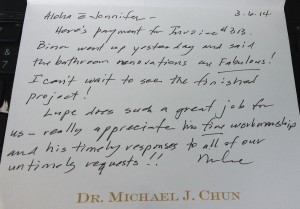 Aloha Jennifer – 3-6-14
Here's payment for Invoice #313.
Bina went up yesterday and said
the bathroom renovations are Fabulous!
I can't wait to see the finished
project!
Lupe does such a great job for
us – really appreciate his fine workmanship
and his timely responses to all of our
untimely requests!!
DR. MICHAEL J. CHUN